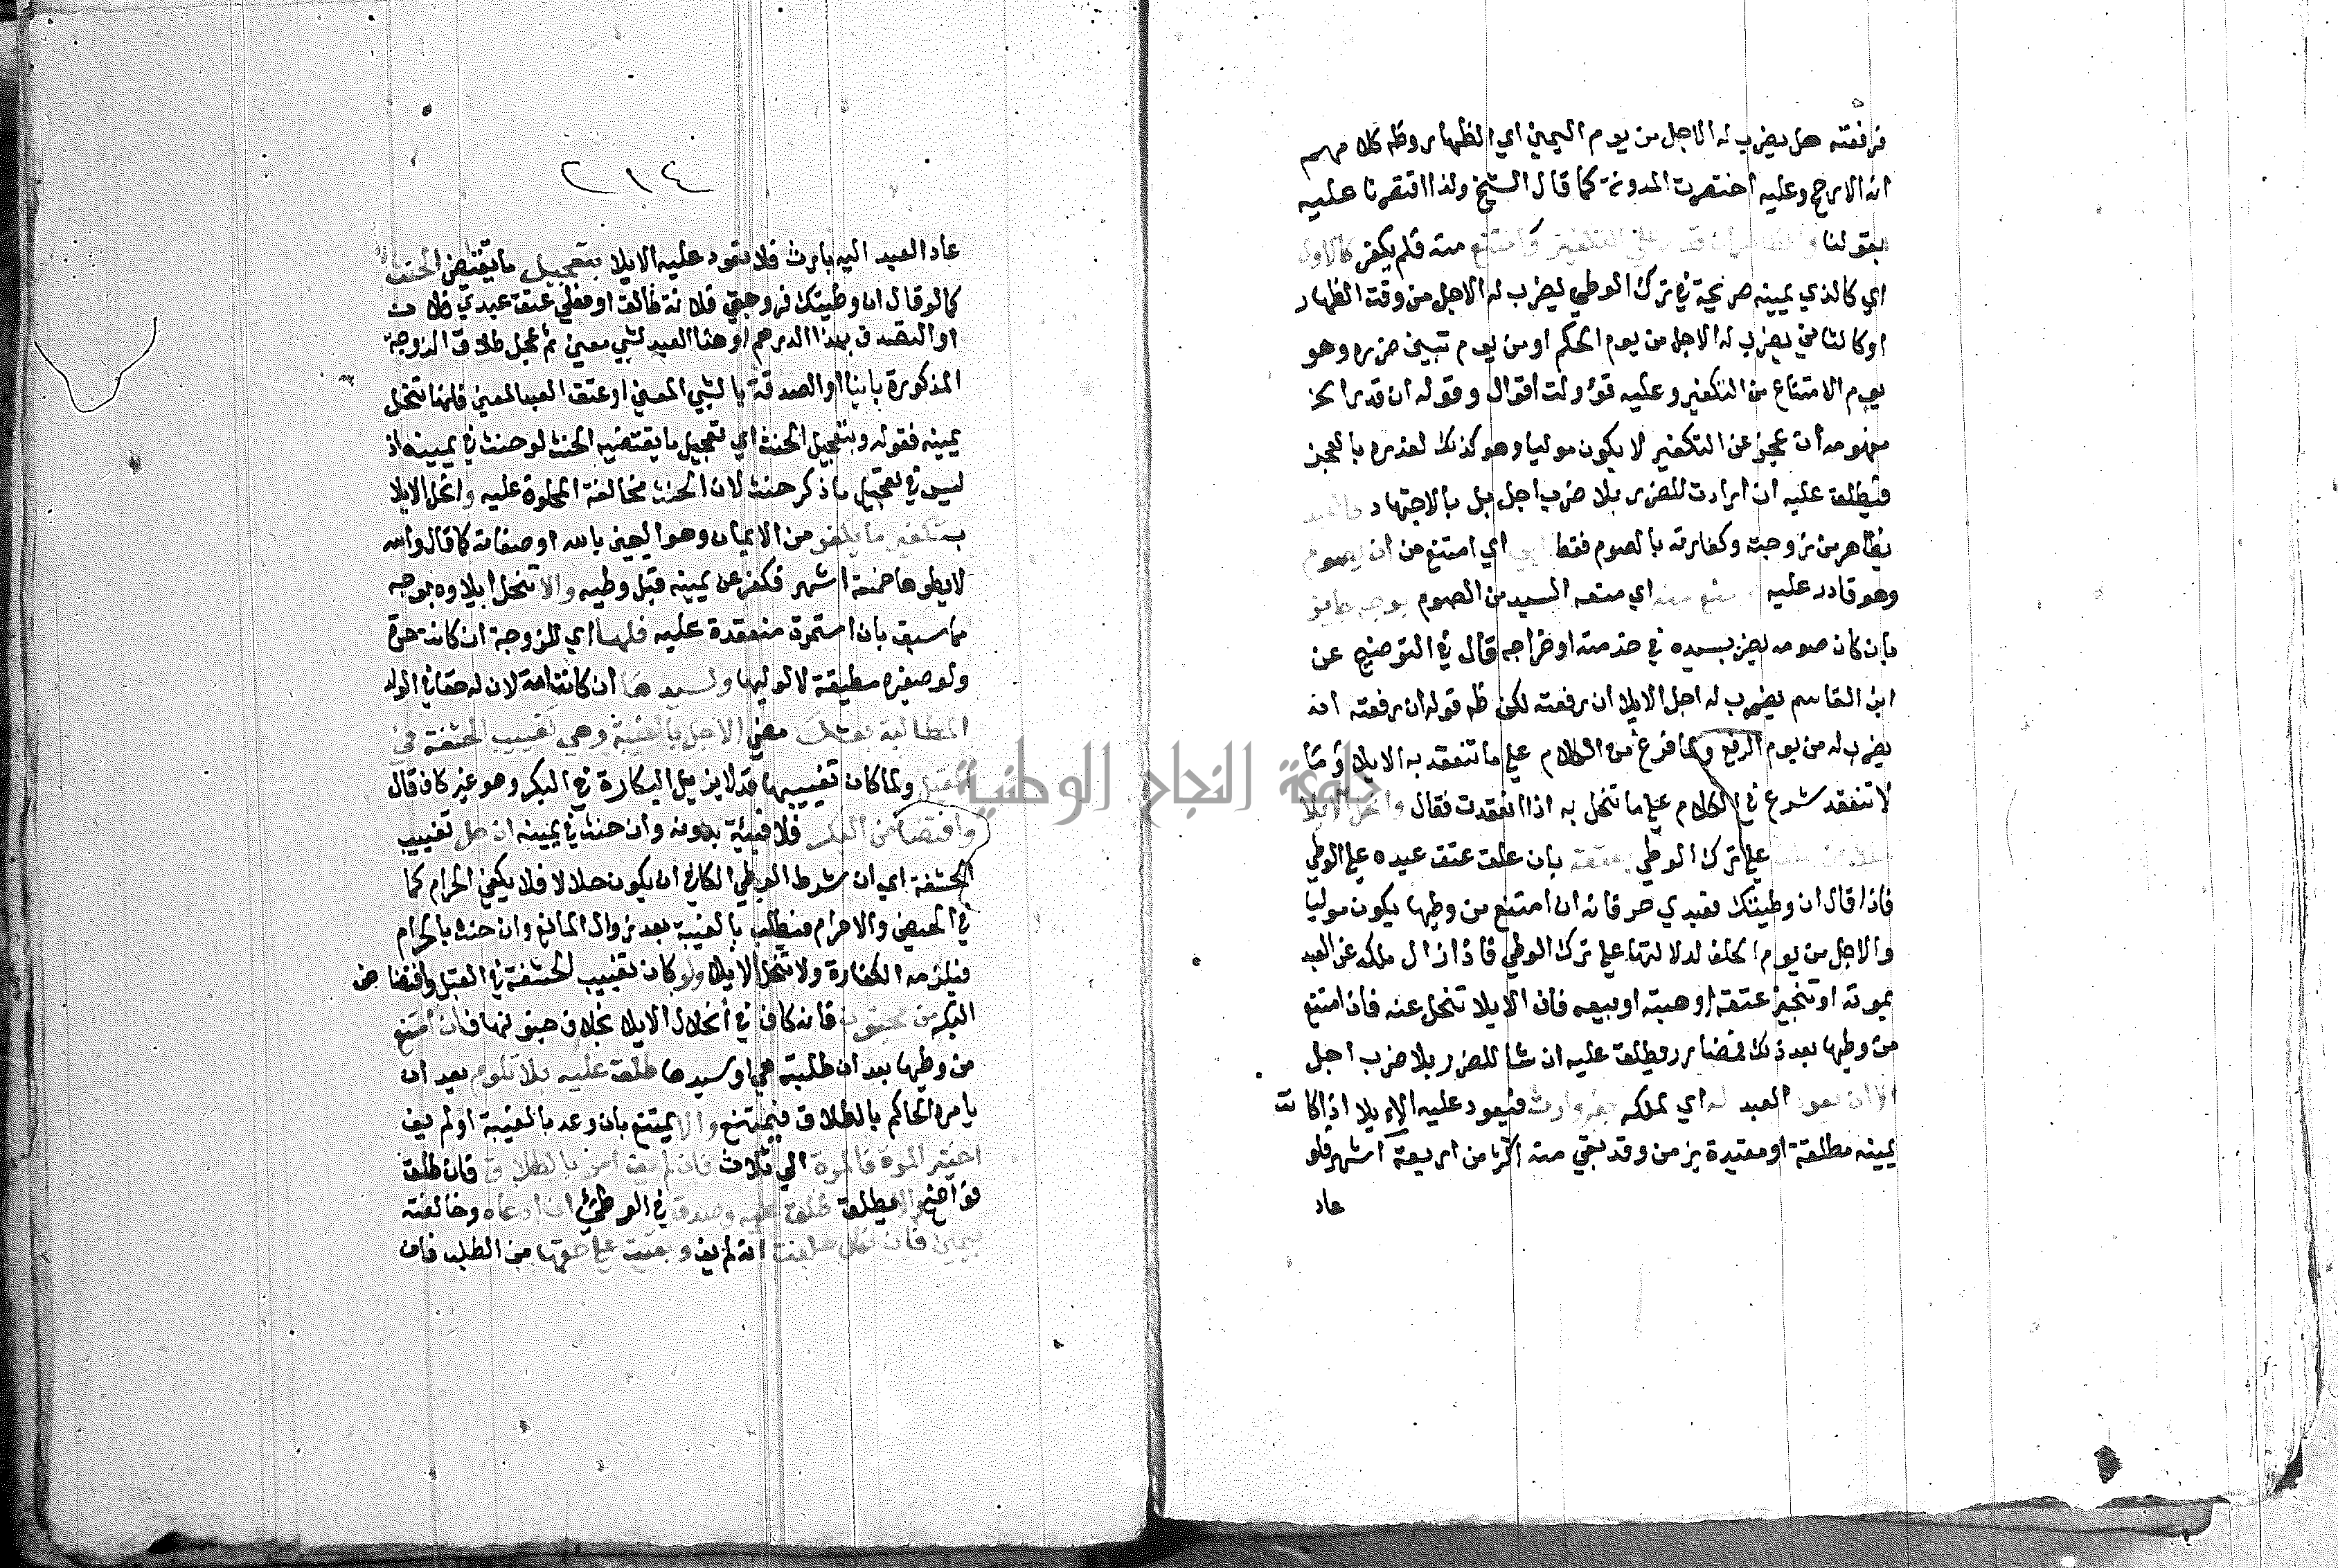 فرفعته هل يضرب له الاجل من يوم اليمين اي الظهار وظ كلامهم
انه الارجح وعليه اختصرت المدونة كما قال الشيخ ولذا اقتصرنا عليه
بقولنا منه فلم يكفر كالاول
اي كالذي يمينه صريحة في ترك الوطي يضرب له الاجل من وقت الظهار
او كالثاني يضرب له الاجل من يوم الحكم او من يوم تبين ضرره وهو
يوم الامتناع من التكفير وعليه تؤولت اقوال وقوله ان قدر الخ
مفهومه ان عجز عن التكفير لا يكون موليا وهو كذلك لعذره بالعجز
فيطلق عليه ان ارادت للضرر بلا ضرب اجل بل بالاجتهاد كالعبد
يظاهر من زوجته وكفارته بالصوم فقط اي امتنع من ان يصوم
وهو قادر عليه اي منعه السيد من الصوم بوجه جايز
بان كان صومه يضر بسيده في خدمته او خراجه قال في التوضيح عن
ابن القاسم يضرب له اجل الايلا ان رفعته لكن ظ قوله ان رفعته انه
يضرب له من يوم الرفع ولما فرغ من الكلام على ما تنعقد به الايلا وما
لا تنعقد شرع في الكلام على ما تنحل به اذا انعقدت فقال وانحل الايلا
على ترك الوطي بعتقه بان علق عتق عبده على الوطي
فاذا قال ان وطيتك فعبدي حر فانه ان امتنع من وطيها يكون موليا
والاجل من يوم الحلف لدلالتها على ترك الوطي فاذا زال ملكه عن العبد
بموته او تنجيز عتقه او هبته او بيعه فان الايلا تنحل عنه فان امتنع
من وطيها بعد ذلك فمضار ويطلق عليه ان شا للضرر بلا ضرب اجل
الا ان يعود العبد له اي لملكه بغير ارث فيعود عليه الايلا اذا كانت
يمينه مطلقة او مقيدة بزمن وقد بقي منه اكثر من اربعة اشهر فلو
عاد
٢١٤
عاد العبد اليه بارث فلا تعود عليه الايلا بتعجيل ما يقتضي الحنث
كما لو قال ان وطيتك فزوجتي فلانة طالق او فعلي عتق عبدي فلان
او التصدق بهذا الدرهم او هذا العبد لشي معين ثم عجل طلاق الزوجة
المذكورة باينا او الصدقة بالشي المعين او عتق العبد المعين فانها تنحل
يمينه فقوله وبتعجيل الحنث اي تعجيل ما يقتضيه الحنث لو حنث في يمينه اذ
ليس في تعجيل ما ذكر حنث لان الحنث مخالفة المحلوف عليه وانحل الايلا
بتكفير ما يكفر من الايمان وهو اليمين بالله او صفاته كما قال والله
لا يطوها خمسة اشهر فكفر عن يمينه قبل وطيه والا تنحل ايلاوه بوجه
مما سبق بان استمرت منعقدة عليه فلها اي للزوجة ان كانت حرة
ولو صغيرة مطيقة لا لوليها ولسيدها ان كانت امة لان له حقا في الولد
المطالبة بعد مضي الاجل بالفيئة وهي تغييب الحشفة في
القبل ولما كان تغييبها قد لا يزيل البكارة في البكر وهو غير كاف قال
وافتضاض البكر فلا فيئة بدونه وان حنث في يمينه ان حل تغييب
الحشفة اي ان شرط الوطي الكافي ان يكون حلالا فلا يكفي الحرام كما
في الحيض والاحرام فيطلب بالفيئة بعد زوال المانع وان حنث بالحرام
فيلزمه الكفارة ولا تنحل الايلا ولو كان تغييب الحشفة في القبل وافتضاض
البكر من مجنون فانه كاف في انحلال الايلا بخلاف جنونها فان امتنع
من وطيها بعد ان طلبته هي او سيدها طلق عليه بلا تلوم بعد ان
يامره الحاكم بالطلاق فيمتنع والا يمتنع بان وعد بالفيئة او لم يف
اختبر المرة فالمرة الى ثلاث فان لم يف امر بالطلاق فان طلق
فواضح والا يطلق طلق عليه وصدق في الوطئ ان ادعاه وخالفته
بيمين فان نكل حلفت انه لم يف وبقيت على حقها من الطلب فان